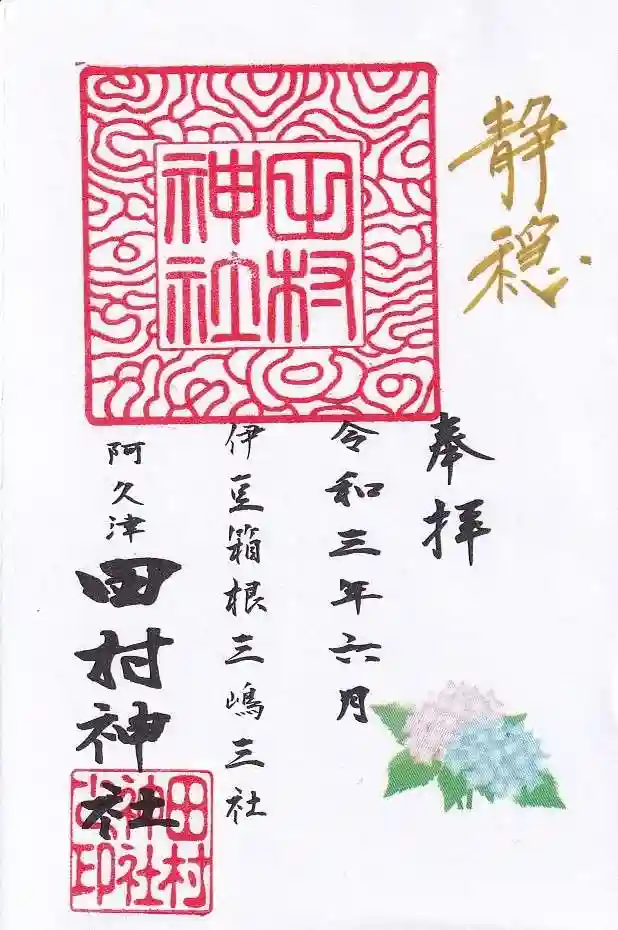 静穏
奉拝
令和三年六月
伊豆箱根三嶋三社
阿久津
田村神社
田村
神社
田村
神社
之印